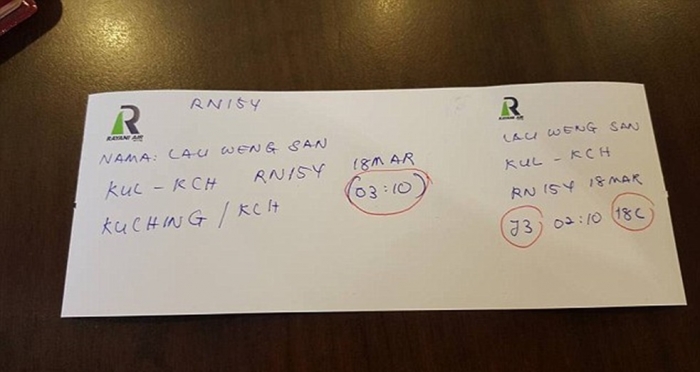 RN154
RAYANI AIR
NAMA: LAU WENG SAN
KUL - KCH RN154 18MAR
(03:10)
KUCHING / KCH
RAYANI AIR
LAU WENG SAN
KUL - KCH
RN154 18MAR
J3 02:10 18C